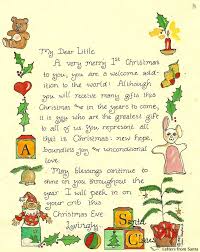 My Dear Little
A very merry 1st Christmas
to you, you are a welcome addi-
tion to the world! Although
you will receive many gifts this
Christmas and in the years to come,
it is you who are the greatest gift
to all of us. You represent all
that is Christmas: new hope
boundless joy and unconditional
love.
May blessings continue to
shine on you throughout the
year. I will peek in on
your crib on this
Christmas Eve
Lovingly,
Santa
Claus
A
Letters from Santa